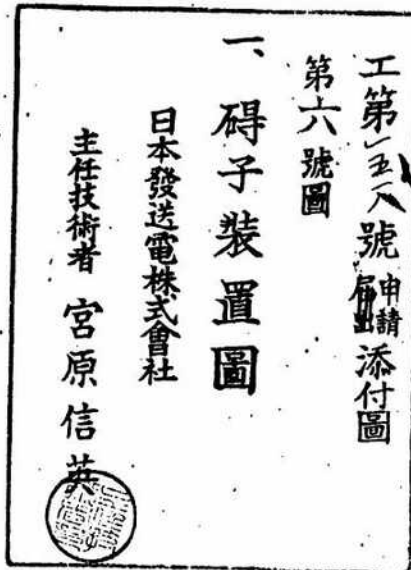 工第一五八號申請届出添付圖
第六號圖
一、碍子裝置圖
日本發送電株式會社
主任技術者 宮原信英